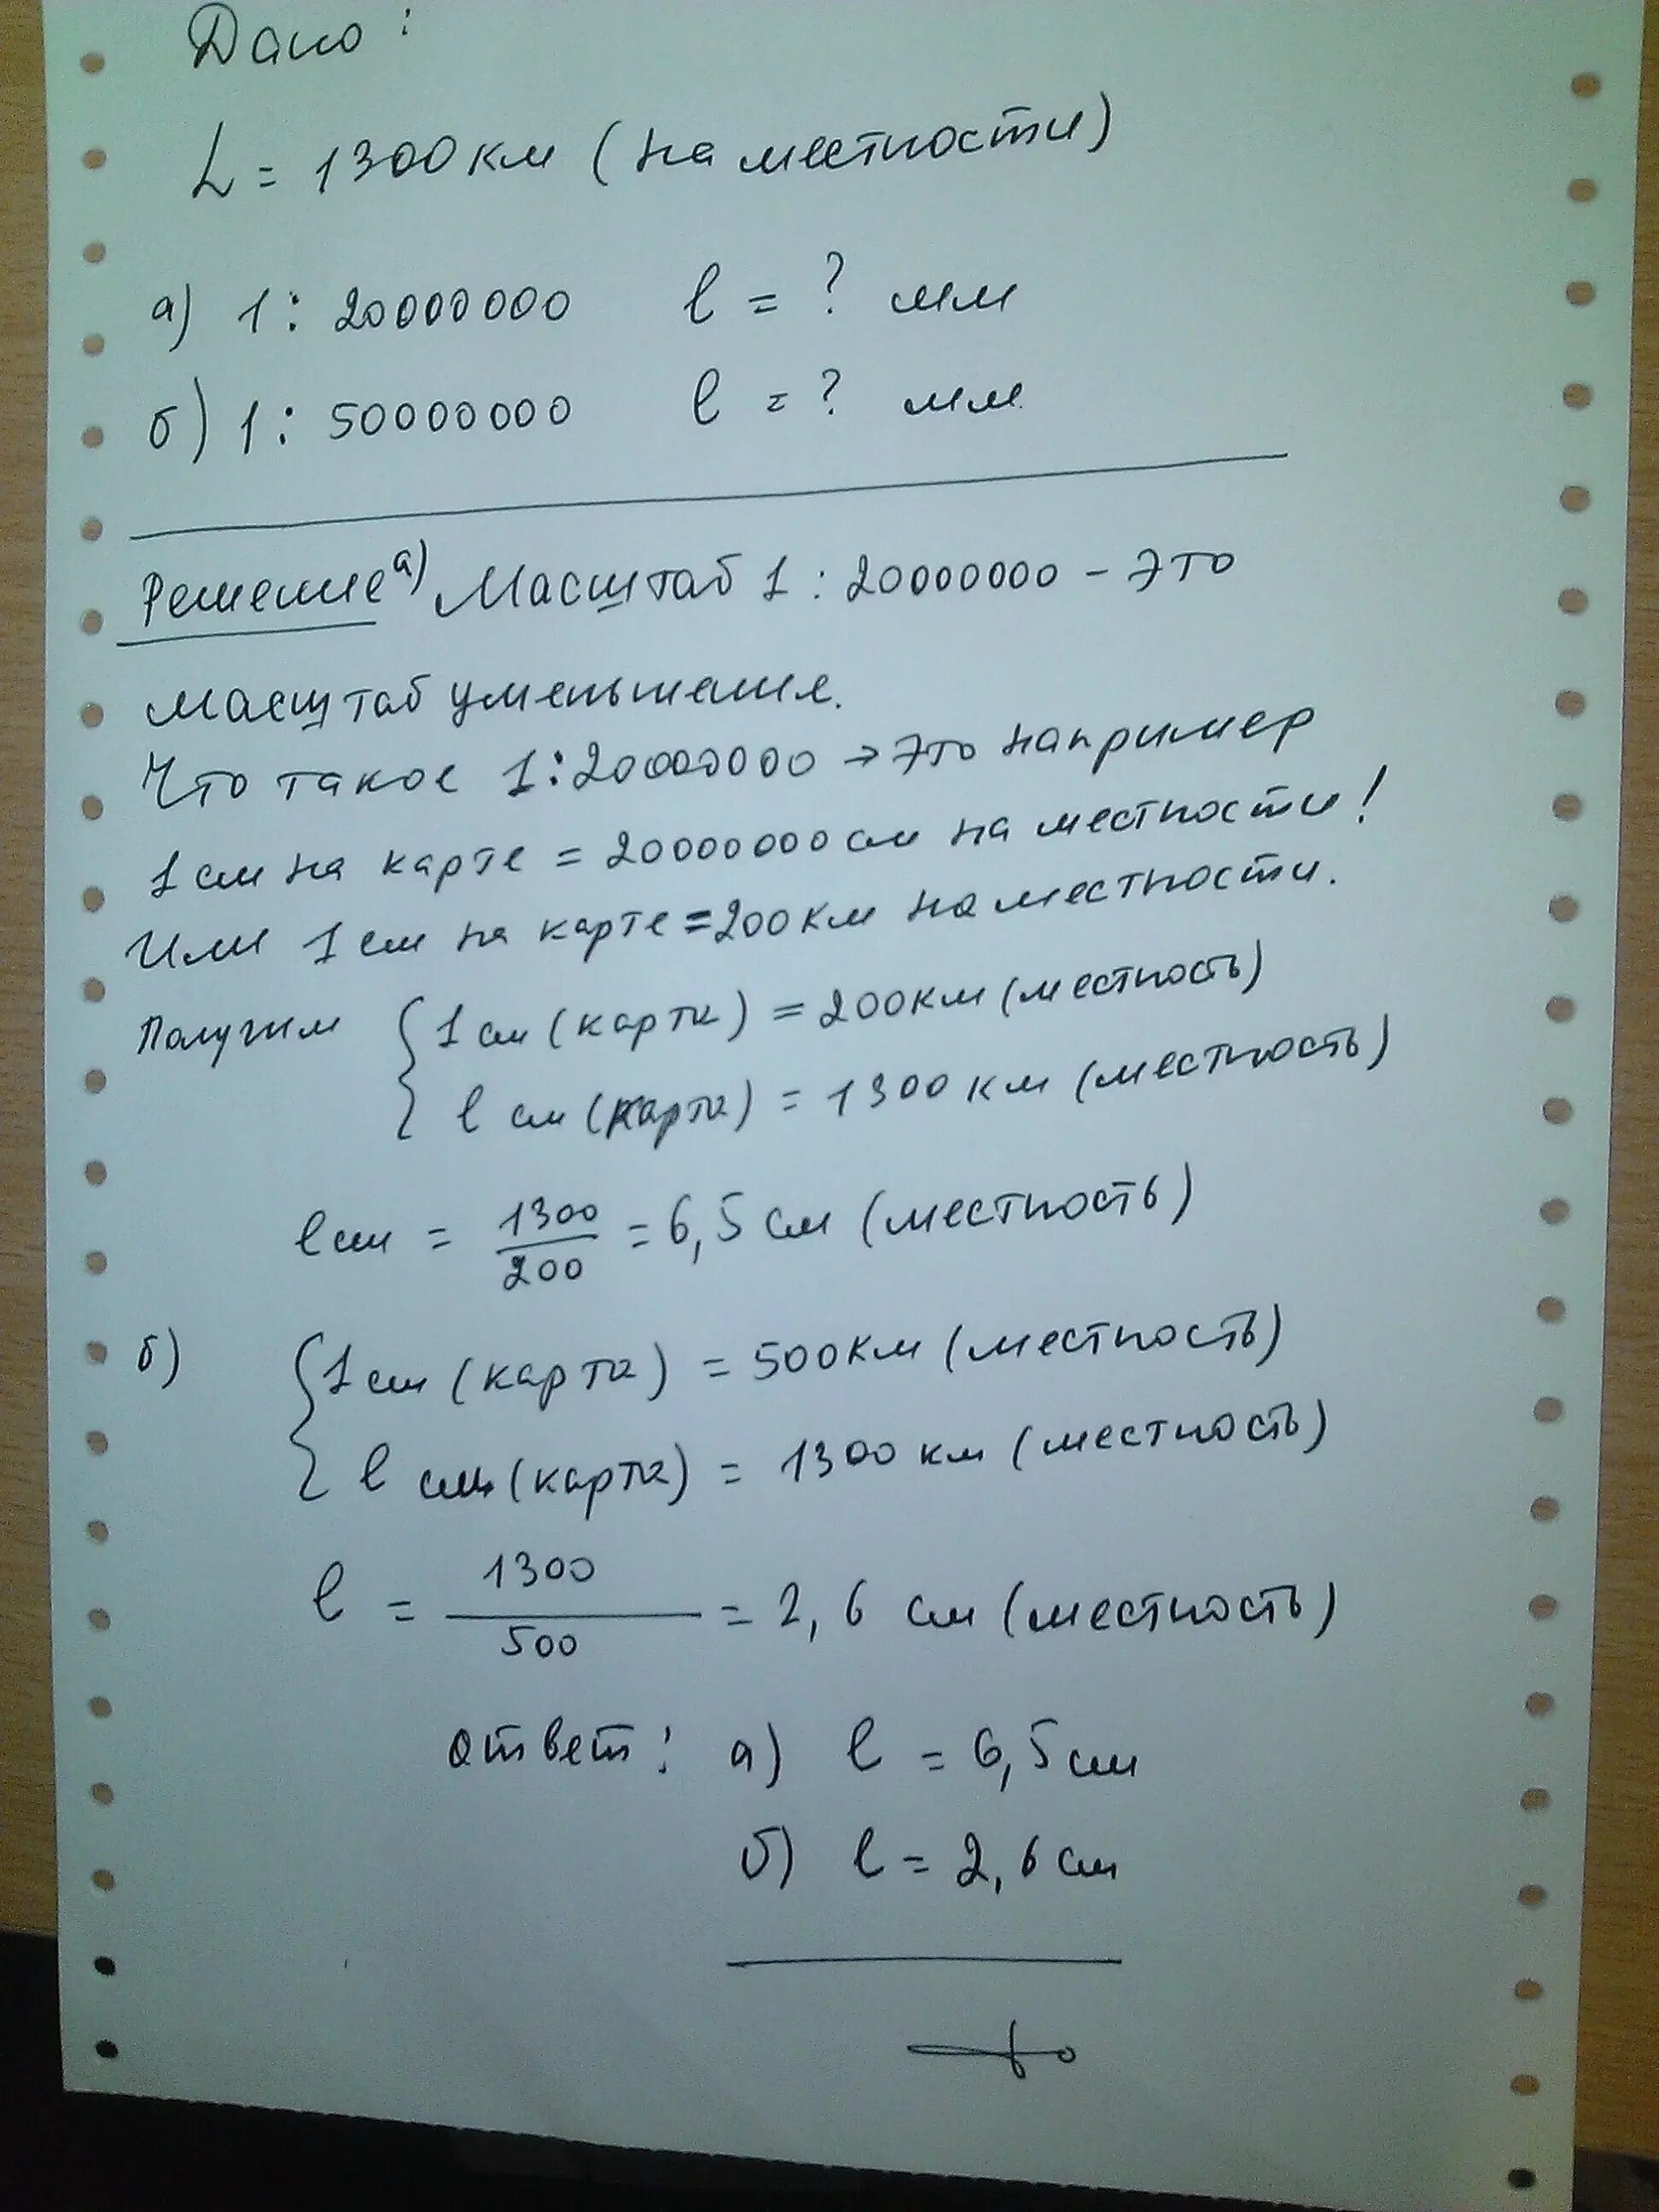 Дано:
L = 1300 км (на местности)
а) 1 : 20000000 l = ? мм
б) 1 : 50000000 l = ? мм
Решение а) Масштаб 1 : 20000000 - это
масштаб уменьшения.
Что такое 1:20000000 → это например
1 см на карте = 20000000 см на местности!
Или 1 см на карте = 200 км на местности.
Получим { 1 см (карта) = 200 км (местность)
l см (карта) = 1300 км (местность)
l см = 1300/200 = 6,5 см (местность)
б) { 1 см (карта) = 500 км (местность)
l см (карта) = 1300 км (местность)
l = 1300/500 = 2,6 см (местность)
ответ: а) l = 6,5 см
б) l = 2,6 см